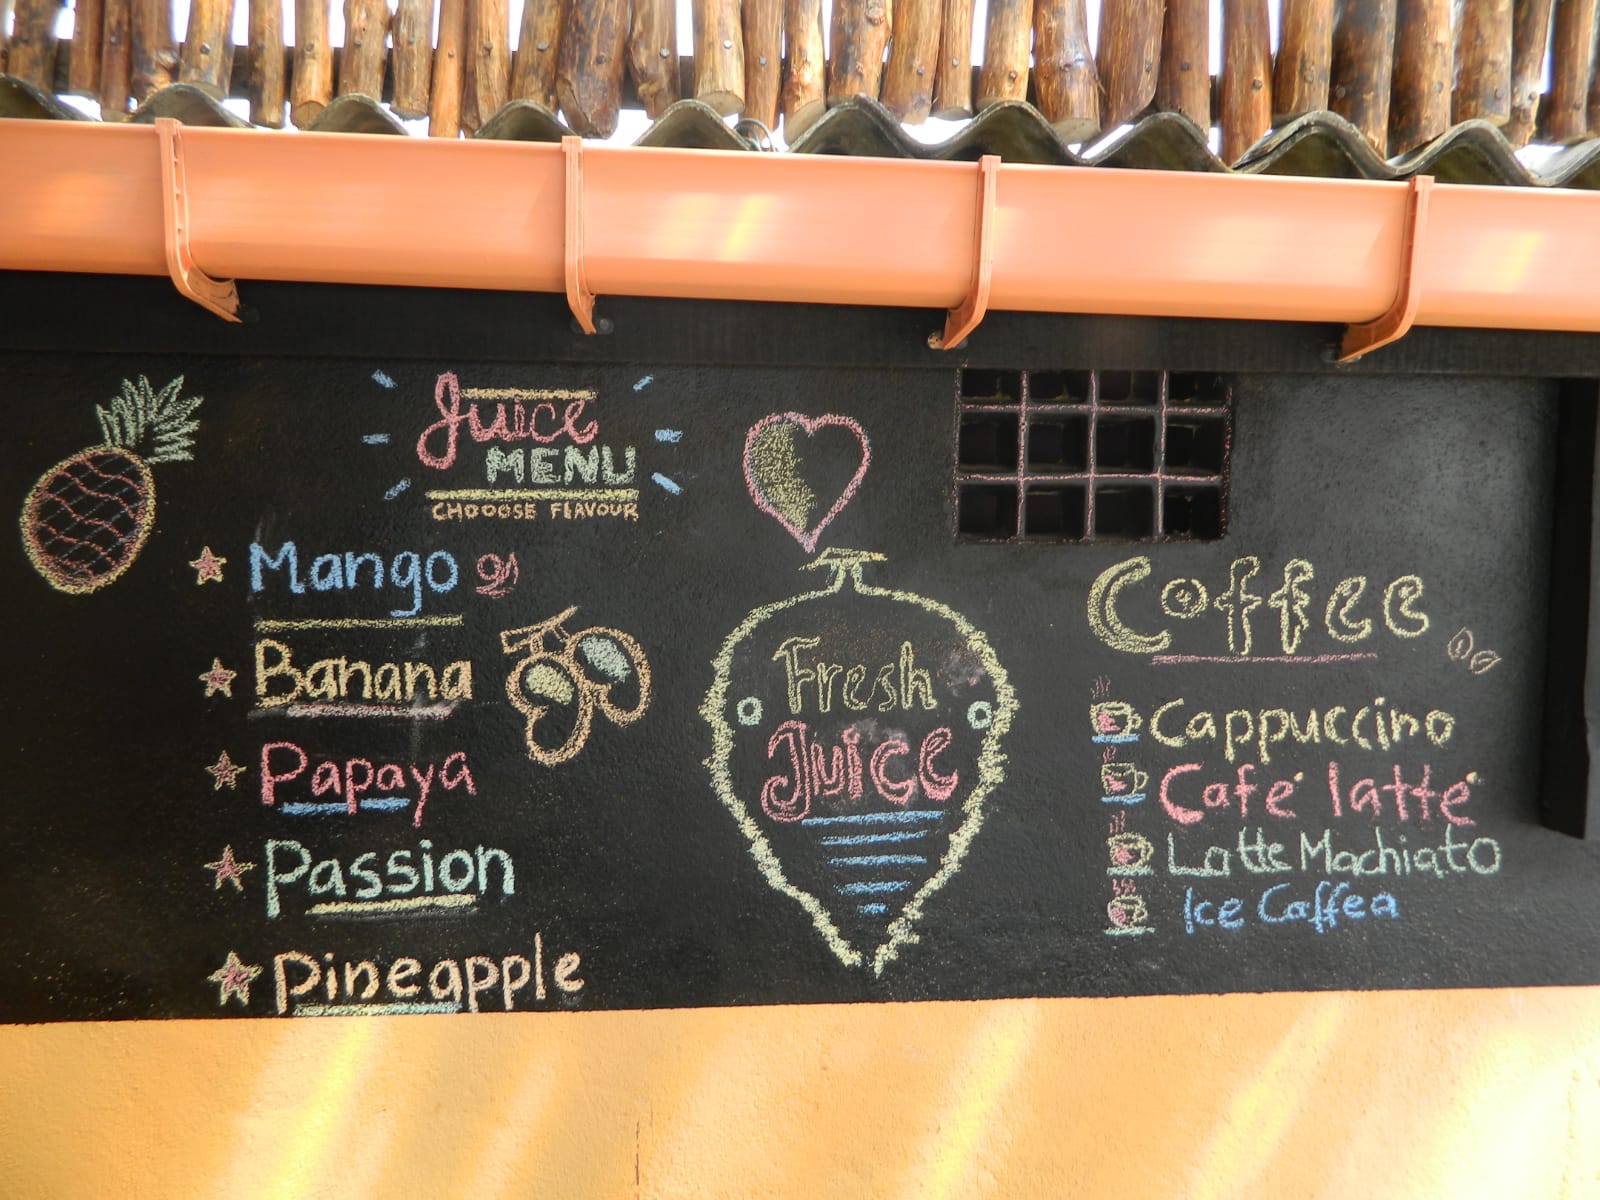 Juice
MENU
CHOOOSE FLAVOUR
Mango
Banana
Papaya
Passion
Pineapple
Fresh
Juice
Coffee
Cappuccino
Café latté
Latte Machiato
Ice Caffea